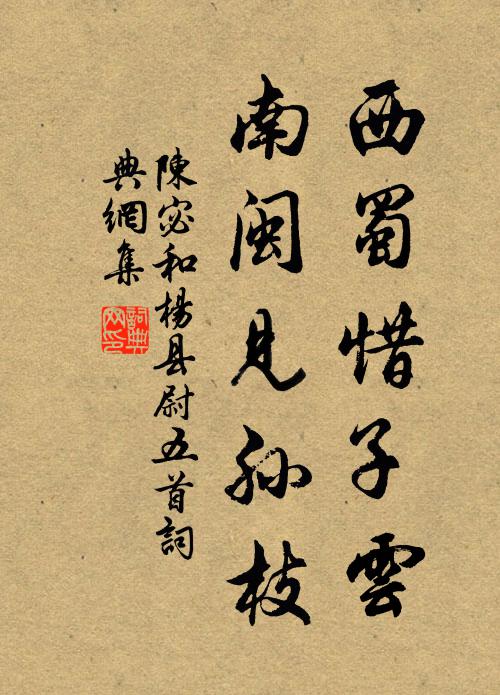 西蜀惜子雲
南閩見孙枝
陳宓和楊县尉五首詞
典網集
詞典
网印